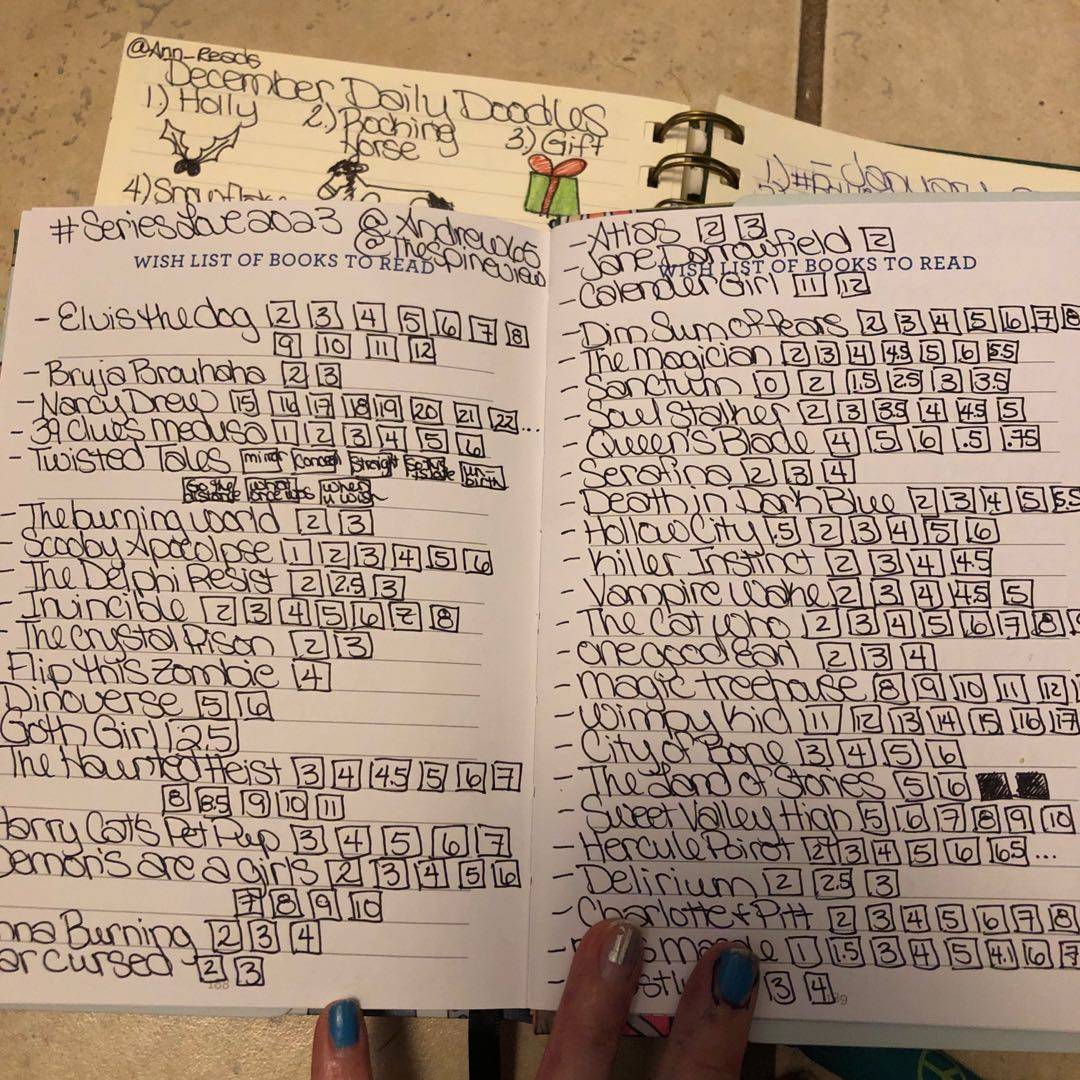 @Ann_Reads
December Daily Doodles
1.) Holly
2.) Rocking Horse
3.) Gift
4.) Snowflake
January
#SeriesLove2023 @Andrew65
@TheSpineView
WISH LIST OF BOOKS TO READ
- Elvis the dog 2 3 4 5 6 7 8
9 10 11 12
- Bruja Brouhaha 2 3
- Nancy Drew 15 16 17 18 19 20 21 22...
- 39 Clues Medusa 1 2 3 4 5 6
- Twisted Tales mirror conceal straight un-birth
Go the distance what once when u wish
- The burning world 2 3
- Scooby Apocolpse 1 2 3 4 5 6
- The Delphi Resist 2 2.5 3
- Invincible 2 3 4 5 6 7 8
- The Crystal Prison 2 3
Flip this Zombie 4
Dinoverse 5 6
Goth Girl 2.5
The Haunted Heist 3 4 4.5 5 6 7
8 8.5 9 10 11
Harry Cat's Pet Pup 3 4 5 6 7
Demon's are a girls 2 3 4 5 6
7 8 9 10
Burning 2 3 4
cursed 2 3
168
- Atlas 2 3
- Jane Darrowfield 2
WISH LIST OF BOOKS TO READ
- Calender Girl 11 12
- Dim Sum of fears 2 3 4 5 6 7 8
- The Magician 2 3 4 4.5 5 6 5.5
- Sanctum 0 2 1.5 2.5 3 3.5
- Soul Stalker 2 3 3.5 4 4.5 5
- Queen's Blade 4 5 6 .5 .75
- Serafina 2 3 4
- Death in Dark Blue 2 3 4 5 5.5
- Hollow City .5 2 3 4 5 6
- Killer Instinct 2 3 4 4.5
- Vampire Wake 2 3 4 4.5 5
- The Cat who 2 3 4 5 6 7 8 9
- One good Earl 2 3 4
- Magic treehouse 8 9 10 11 12
- Wimpy Kid 11 12 13 14 15 16 17
- City of Bone 3 4 5 6
- The Land of Stories 5 6
- Sweet Valley High 5 6 7 8 9 10
- Hercule Poirot 2 3 4 5 6 6.5...
- Delirium 2 2.5 3
- Charlotte + Pitt 2 3 4 5 6 7 8
- 1 1.5 3 4 5 4.1 6 7
- 3 4